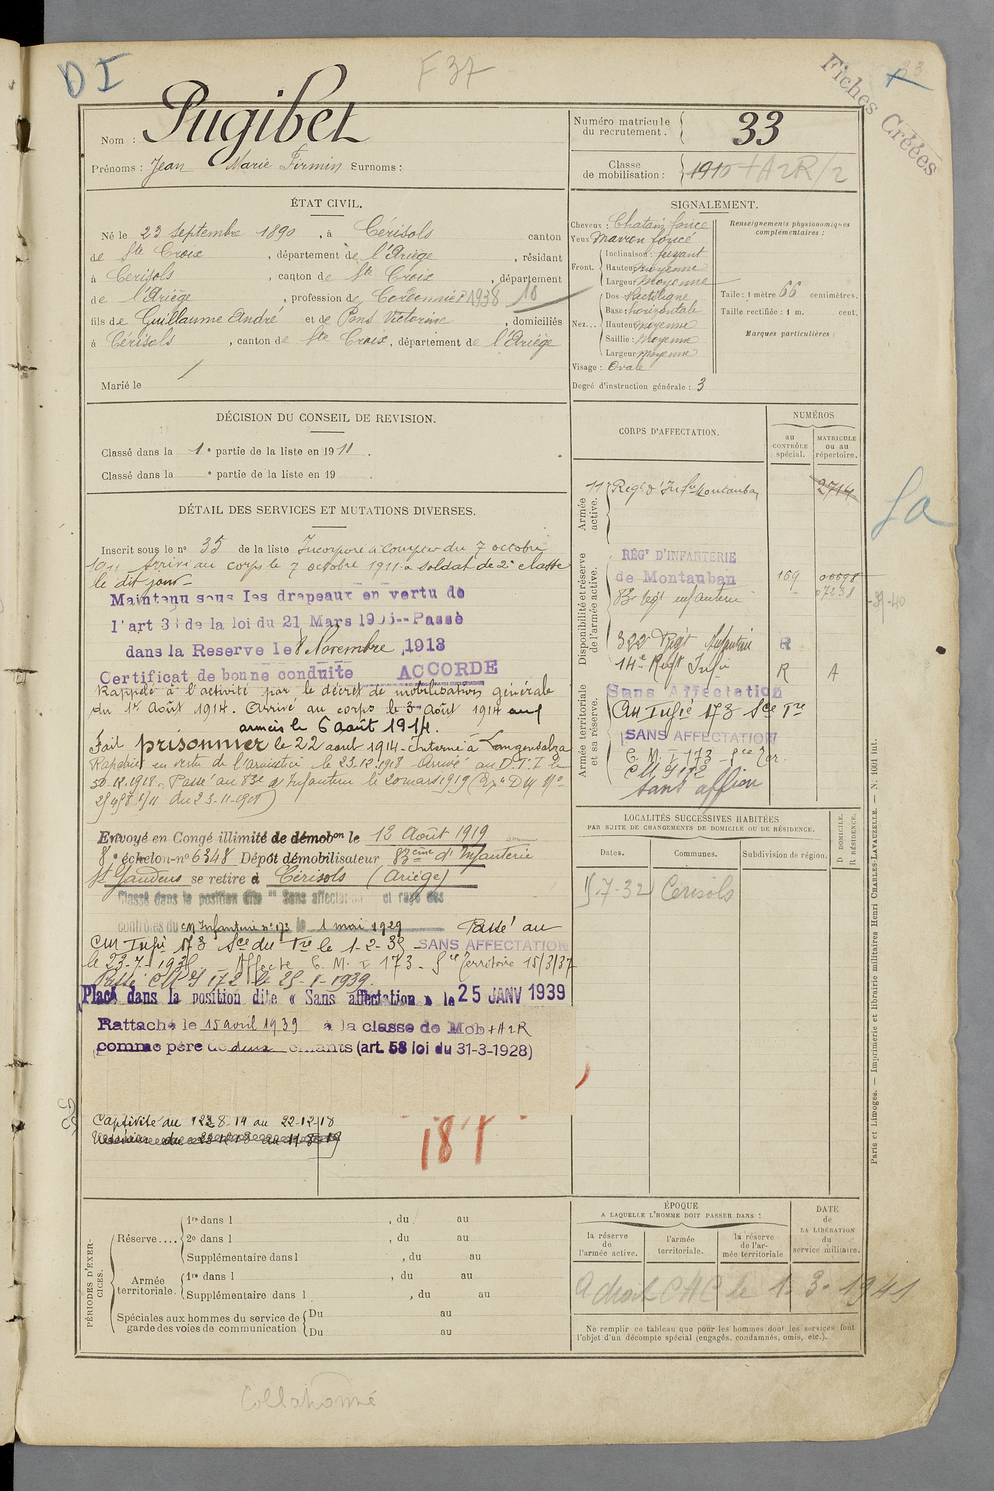 DI
F 37
Fiches Créées
Nom : Pugibet
Prénoms : Jean Marie Firmin Surnoms :
Numéro matricule du recrutement : 33
Classe de mobilisation : 1910 + A2R/2
ÉTAT CIVIL.
Né le 23 septembre 1890, à Cérisols canton
de Ste Croix, département de l'Ariège, résidant
à Cerisols, canton de Ste Croix, département
de l'Ariège, profession de Cordonnier 1938 10
fils de Guillaume André et de Pons Victorine, domiciliés
à Cérisols, canton de Ste Croix, département de l'Ariège
Marié le
SIGNALEMENT.
Cheveux : Chatain foncé
Yeux Marron foncé
Front. Inclinaison : fuyant
Hauteur moyenne
Largeur moyenne
Nez... Dos rectiligne
Base : horizontale
Hauteur moyenne
Saillie : Moyenne
Largeur moyenne
Visage : Ovale
Degré d'instruction générale : 3
Renseignements physionomiques complémentaires :
Taille : 1 mètre 66 centimètres.
Taille rectifiée : 1 m. cent.
Marques particulières :
DÉCISION DU CONSEIL DE REVISION.
Classé dans la 1e partie de la liste en 1911.
Classé dans la e partie de la liste en 19 .
DÉTAIL DES SERVICES ET MUTATIONS DIVERSES.
Inscrit sous le n° 35 de la liste Incorporé à compter du 7 octobre
1911 Arrivé au corps le 7 octobre 1911 à soldat de 2e classe
le dit jour
Maintenu sous les drapeaux en vertu de
l'art 33 de la loi du 21 Mars 1905--Passé
dans la Reserve le 8 Novembre 1913
Certificat de bonne conduite ACCORDE
Rappelé à l'activité par le décret de mobilisation générale
du 1er Août 1914. Arrivé au corps le 3 août 1914
armées le 6 août 1914.
Fait prisonnier le 22 aout 1914 - Interné à Langensalza
Rapatrié en vertu de l'armistice le 23.12.1918 - Arrivé au D.T.I le
30.12.1918. Passé au 83e d'Infanterie le 20 mars 1919
du 25-11-1918)
Envoyé en Congé illimité de démobon le 12 Août 1919
8e échelon n° 6348 Dépôt démobilisateur 83ème d'Infanterie
St Gaudens se retire à Cérisols (Ariège)
Classé dans la position dite "Sans affectation" et rayé des
contrôles du CM Infanterie n° 173 le 1 mai 1929 Passé au
CM Infie 173 le 1-2-35 SANS AFFECTATION
le 23-7-1936 Affecté C.M.I 173 - Sce Territoire 15/3/37
Passé CM I 172 le 25-1-1939.
Placé dans la position dite « Sans affectation » le 25 JANV 1939
Rattaché le 15 avril 1939 à la classe de Mob + A2R
comme père de deux enfants (art. 58 loi du 31-3-1928)
Captivité du 22.8.14 au 22-12-18
187
CORPS D'AFFECTATION.
NUMÉROS
au CONTRÔLE spécial.
MATRICULE ou au répertoire.
Armée active.
11e Régt d'Infie Montauban 2714
Disponibilité et réserve de l'armée active.
RÉGt D'INFANTERIE
de Montauban 169
83e Régt infanterie
322e Régt Infanterie R
14e Régt Infie R A
Armée territoriale et sa réserve.
Sans Affectation
CM Infie 173 Sce Tre
SANS AFFECTATION
C. M. I 173 - Sce Ter.
CM I 172
sans affton
39-40
LOCALITÉS SUCCESSIVES HABITÉES
PAR SUITE DE CHANGEMENTS DE DOMICILE OU DE RÉSIDENCE.
Dates. Communes. Subdivision de région. D. DOMICILE. R. RÉSIDENCE.
7-32 Cerisols
PÉRIODES D'EXERCICES.
Réserve.... 1re dans l , du au
2e dans l , du au
Supplémentaire dans l , du au
Armée territoriale. 1re dans l , du au
Supplémentaire dans l , du au
Spéciales aux hommes du service de garde des voies de communication Du au
Du au
ÉPOQUE
A LAQUELLE L'HOMME DOIT PASSER DANS :
la réserve de l'armée active.
l'armée territoriale.
la réserve de l'armée territoriale
DATE de LA LIBÉRATION du service militaire.
A droit CAC le 1-3-1941
Ne remplir ce tableau que pour les hommes dont les services font l'objet d'un décompte spécial (engagés, condamnés, omis, etc.).
Paris et Limoges. — Imprimerie et librairie militaires Henri CHARLES-LAVAUZELLE. — N. 1001 int.
Collationné